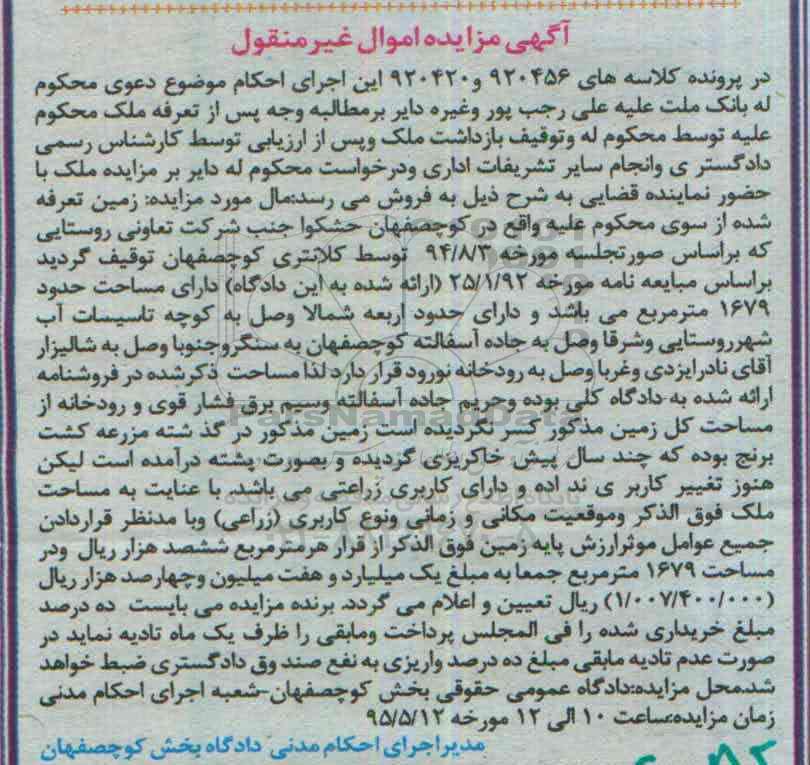 آگهی مزایده اموال غیرمنقول
در پرونده کلاسه های ۹۲۰۴۵۶ و۹۲۰۴۲۰ این اجرای احکام موضوع دعوی محکوم
له بانک ملت علیه علی رجب پور وغیره دایر برمطالبه وجه پس از تعرفه ملک محکوم
علیه توسط محکوم له وتوقیف بازداشت ملک وپس از ارزیابی توسط کارشناس رسمی
دادگستر ی وانجام سایر تشریفات اداری ودرخواست محکوم له دایر بر مزایده ملک با
حضور نماینده قضایی به شرح ذیل به فروش می رسد:مال مورد مزایده: زمین تعرفه
شده از سوی محکوم علیه واقع در کوچصفهان حشکوا جنب شرکت تعاونی روستایی
که براساس صورتجلسه مورخه ۹۴/۸/۳ توسط کلانتری کوچصفهان توقیف گردید
براساس مبایعه نامه مورخه ۲۵/۱/۹۲ (ارائه شده به این دادگاه) دارای مساحت حدود
۱۶۷۹ مترمربع می باشد و دارای حدود اربعه شمالا وصل به کوچه تاسیسات آب
شهرروستایی وشرقا وصل به جاده آسفالته کوچصفهان به سنگروجنوبا وصل به شالیزار
آقای نادرایزدی وغربا وصل به رودخانه نورود قرار دارد لذا مساحت ذکرشده در فروشنامه
ارائه شده به دادگاه کلی بوده وحریم جاده آسفالته وسیم برق فشار قوی و رودخانه از
مساحت کل زمین مذکور کسر نگردیده است زمین مذکور در گذ شته مزرعه کشت
برنج بوده که چند سال پیش خاکریزی گردیده و بصورت پشته درآمده است لیکن
هنوز تغییر کاربر ی ند اده و دارای کاربری زراعتی می باشد. با عنایت به مساحت
ملک فوق الذکر وموقعیت مکانی و زمانی ونوع کاربری (زراعی) وبا مدنظر قراردادن
جمیع عوامل موثرارزش پایه زمین فوق الذکر از قرار هرمترمربع ششصد هزار ریال ودر
مساحت ۱۶۷۹ مترمربع جمعا به مبلغ یک میلیارد و هفت میلیون وچهارصد هزار ریال
(۱/۰۰۷/۴۰۰/۰۰۰) ریال تعیین و اعلام می گردد. برنده مزایده می بایست ده درصد
مبلغ خریداری شده را فی المجلس پرداخت ومابقی را ظرف یک ماه تادیه نماید در
صورت عدم تادیه مابقی مبلغ ده درصد واریزی به نفع صند وق دادگستری ضبط خواهد
شد.محل مزایده:دادگاه عمومی حقوقی بخش کوچصفهان-شعبه اجرای احکام مدنی
زمان مزایده:ساعت ۱۰ الی ۱۲ مورخه ۹۵/۵/۱۲
مدیراجرای احکام مدنی دادگاه بخش کوچصفهان
ParsNamadData